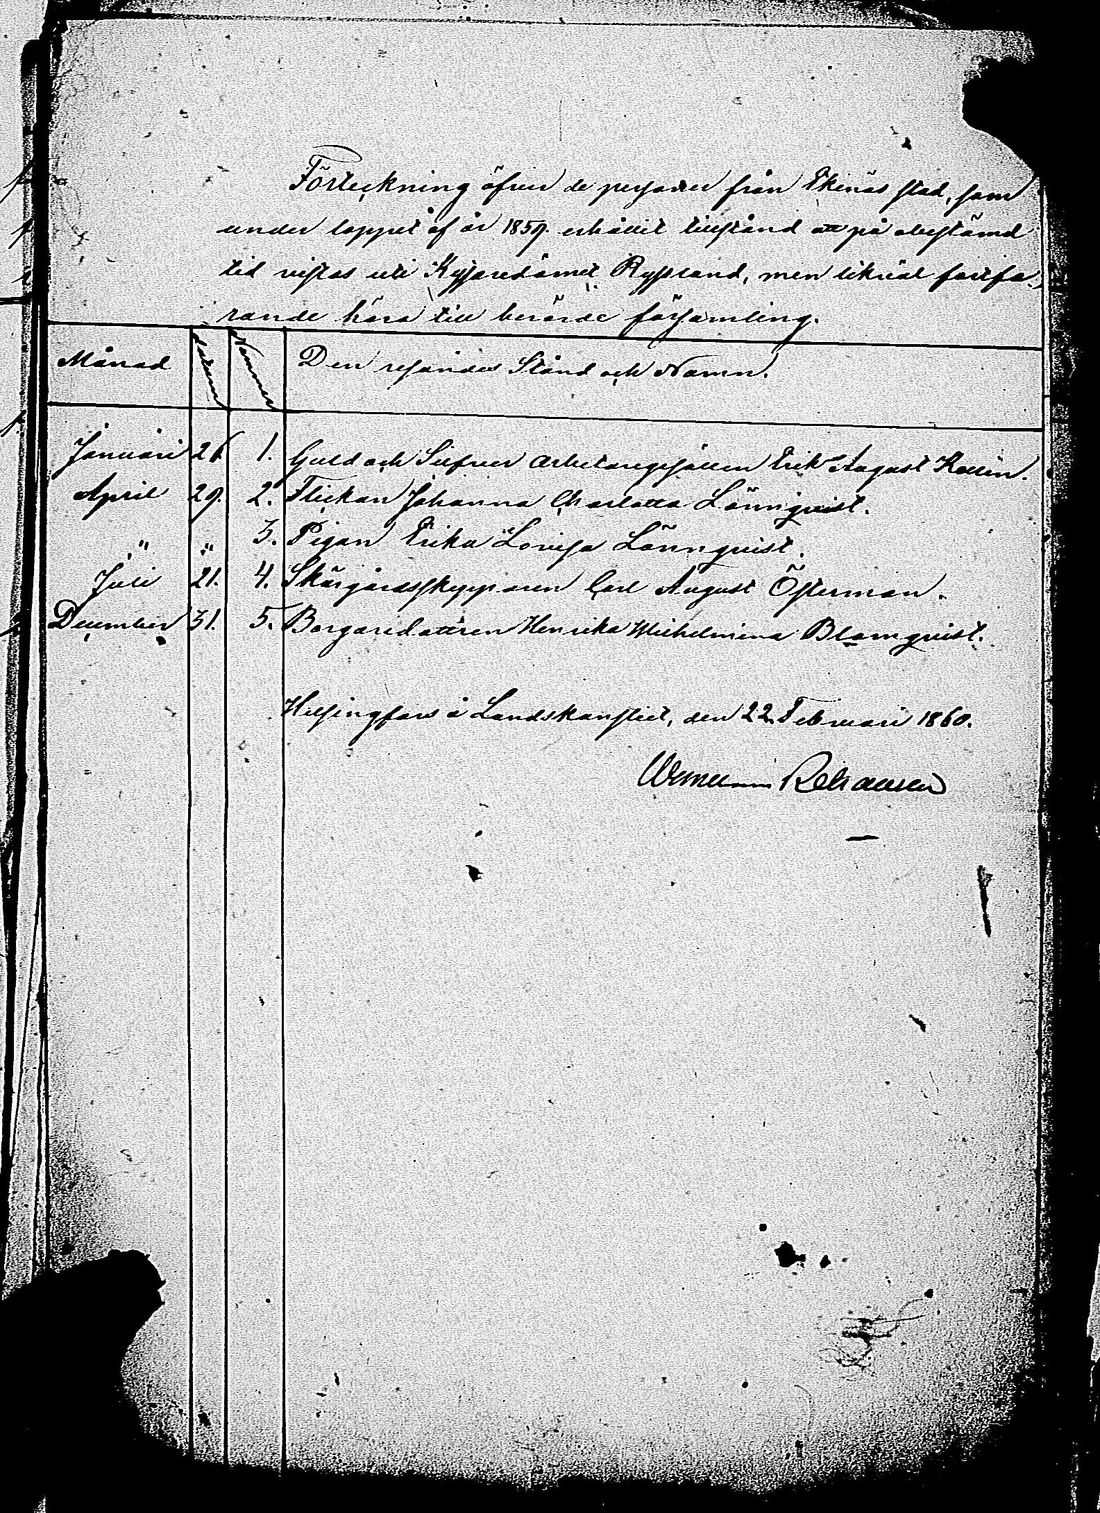 Förteckning öfver de personer från Ekenäs stad, som
under loppet af år 1859. erhållit tillstånd att på obestämd
tid vistas uti Kejsaredömet Ryssland, men likväl fortfa-
rande höra till berörde församling.
Månad Datum Nummer Den resandes Stånd och Namn.
Januari 26 1. Guld och Silfver arbetaregesällen Erik August
April 29. 2. Flickan Johanna Charlotta Lönnqvist.
" " 3. Pigan Erika Lovisa Lönnqvist.
Juli 21. 4. Skärgårdsskepparen Carl August Österman.
December 31. 5. Borgaredottren Henrika Wilhelmina Blomqvist.
Helsingfors å Landskansliet, den 22 Februari 1860.